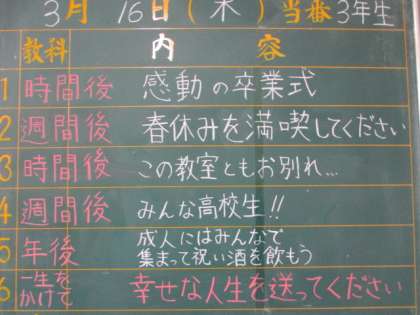 3月 16日(木) 当番 3年生
教科 内容
1 時間後 感動の卒業式
2 週間後 春休みを満喫してください
3 時間後 この教室ともお別れ...
4 週間後 みんな高校生!!
5 年後 成人にはみんなで
集まって祝い酒を飲もう
6 一生を
かけて 幸せな人生を送ってください